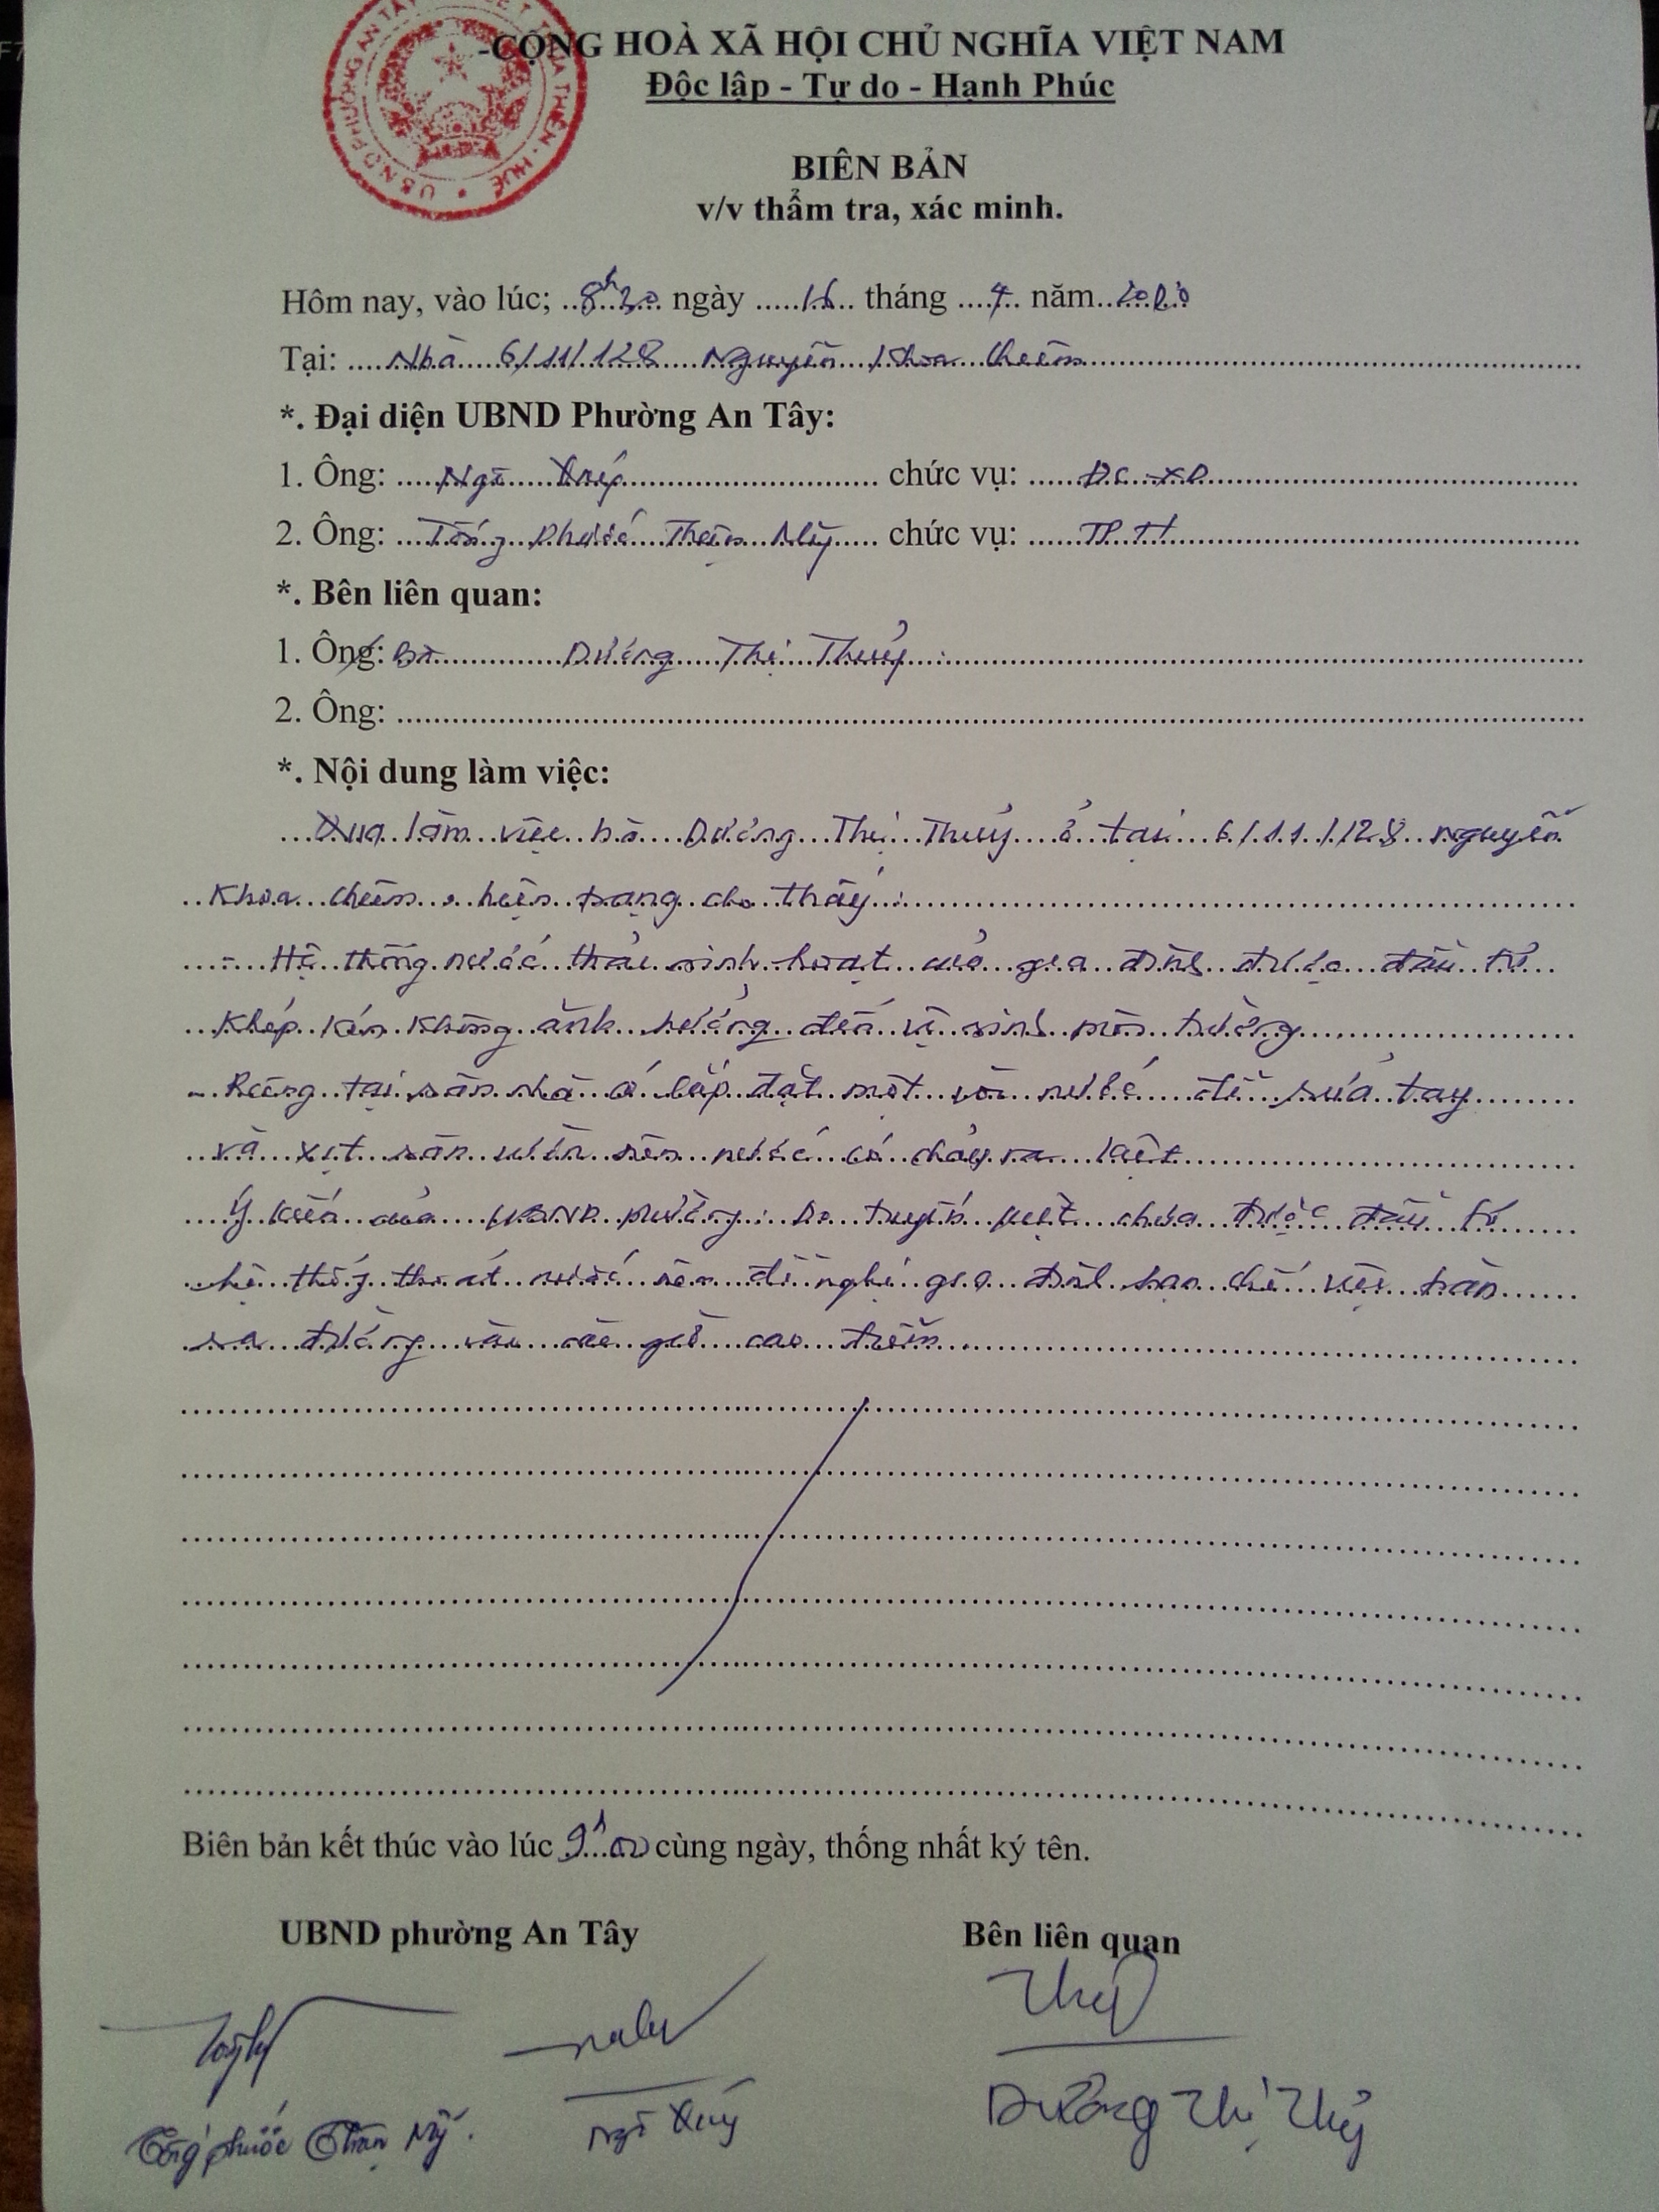 CỘNG HOÀ XÃ HỘI CHỦ NGHĨA VIỆT NAM
Độc lập - Tự do - Hạnh Phúc
BIÊN BẢN
v/v thẩm tra, xác minh.
Hôm nay, vào lúc; 8h30 ngày 16 tháng 4 năm
Tại: Nhà 6/11/128 Nguyễn Khoa Chiêm
*. Đại diện UBND Phường An Tây:
1. Ông: Ngô chức vụ: ĐC-XD
2. Ông: Tống Phước Thiện Mỹ chức vụ: TP.TT
*. Bên liên quan:
1. Ông: Bà Dương Thị Thuỷ
2. Ông:
*. Nội dung làm việc:
Qua làm việc bà Dương Thị Thuỷ ở tại 6/11/128 Nguyễn
Khoa Chiêm, hiện trạng cho thấy:
- Hệ thống nước thải sinh hoạt của gia đình được đầu tư
khép kín không ảnh hưởng đến vệ sinh môi trường
- Riêng tại sân nhà có lắp đặt một vòi nước để rửa tay
và xịt sân vườn nên nước có chảy ra kiệt
Ý kiến của UBND phường: Do tuyến kiệt chưa được đầu tư
hệ thống thoát nước nên đề nghị gia đình hạn chế việc tràn
ra đường vào các giờ cao điểm
Biên bản kết thúc vào lúc 9h00 cùng ngày, thống nhất ký tên.
UBND phường An Tây Bên liên quan
Tống Phước Thiện Mỹ. Ngô Dương Thị Thuỷ